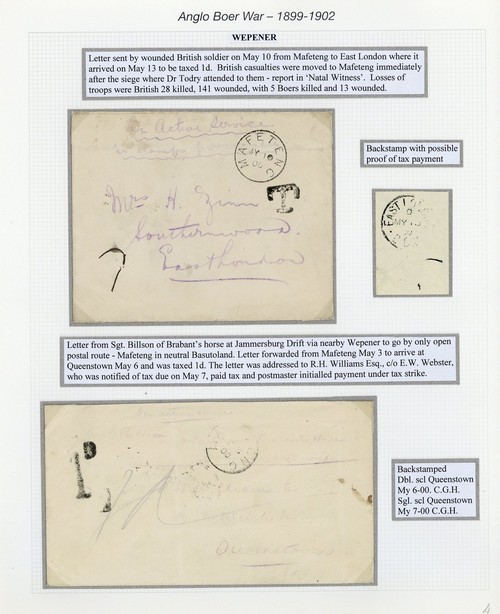 Anglo Boer War – 1899-1902
WEPENER
Letter sent by wounded British soldier on May 10 from Mafeteng to East London where it
arrived on May 13 to be taxed 1d. British casualties were moved to Mafeteng immediately
after the siege where Dr Todry attended to them - report in 'Natal Witness'. Losses of
troops were British 28 killed, 141 wounded, with 5 Boers killed and 13 wounded.
On Active Service
MAFETENG
MY 10
00
T
Mrs H. Zinn
Southernwood.
East London
Backstamp with possible
proof of tax payment
EAST LO
MY 13
Letter from Sgt. Billson of Brabant's horse at Jammersburg Drift via nearby Wepener to go by only open
postal route - Mafeteng in neutral Basutoland. Letter forwarded from Mafeteng May 3 to arrive at
Queenstown May 6 and was taxed 1d. The letter was addressed to R.H. Williams Esq., c/o E.W. Webster,
who was notified of tax due on May 7, paid tax and postmaster initialled payment under tax strike.
Backstamped
Dbl. scl Queenstown
My 6-00. C.G.H.
Sgl. scl Queenstown
My 7-00 C.G.H.